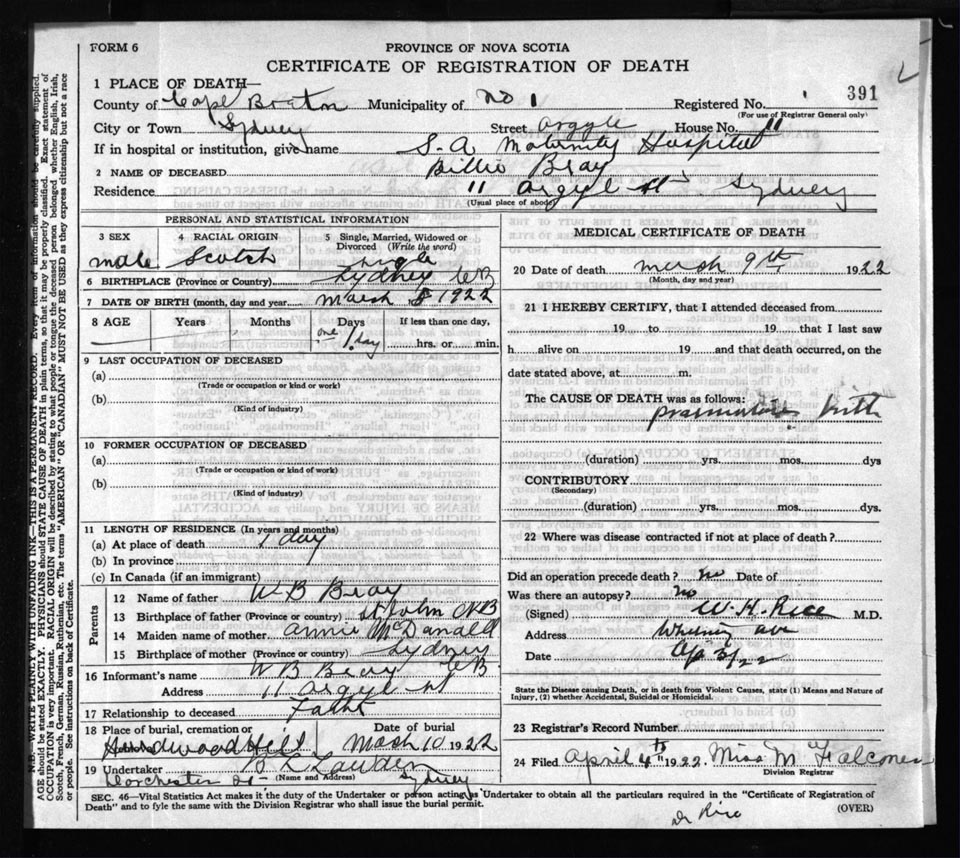 FORM 6
PROVINCE OF NOVA SCOTIA
CERTIFICATE OF REGISTRATION OF DEATH
391
1 PLACE OF DEATH—
County of Cape Breton Municipality of No 1 Registered No.
(For use of Registrar General only)
City or Town Sydney Street Argyle House No. 11
If in hospital or institution, give name S-A Maternity Hospital
2 NAME OF DECEASED Billie Bray
Residence 11 Argyl st Sydney
(Usual place of abode)
PERSONAL AND STATISTICAL INFORMATION
3 SEX male
4 RACIAL ORIGIN Scotch
5 Single, Married, Widowed or Divorced (Write the word) single
6 BIRTHPLACE (Province or Country) Sydney CB
7 DATE OF BIRTH (month, day and year) Marsh 8 1922
8 AGE Years Months Days If less than one day,
one 1 day hrs. or min.
9 LAST OCCUPATION OF DECEASED
(a)
(Trade or occupation or kind or work)
(b)
(Kind of industry)
10 FORMER OCCUPATION OF DECEASED
(a)
(Trade or occupation or kind of work)
(b)
(Kind of industry)
11 LENGTH OF RESIDENCE (In years and months)
(a) At place of death 1 day
(b) In province
(c) In Canada (if an immigrant)
Parents
12 Name of father W B Bray
13 Birthplace of father (Province or country) St John NB
14 Maiden name of mother Annie McDanald
15 Birthplace of mother (Province or country) Sydney CB
16 Informant's name W B Bray
Address 11 Argyl st
17 Relationship to deceased Fath
18 Place of burial, cremation or Date of burial
Hardwood Hill Mash 10 1922
19 Undertaker B L
Dorchester (Name and Address) Sydney
MEDICAL CERTIFICATE OF DEATH
20 Date of death marsh 9th 1922
(Month, day and year)
21 I HEREBY CERTIFY, that I attended deceased from
19 to 19 that I last saw
h alive on 19 and that death occurred, on the
date stated above, at m.
The CAUSE OF DEATH was as follows:
birth
(duration) yrs. mos. dys
CONTRIBUTORY
(Secondary)
(duration) yrs. mos. dys.
22 Where was disease contracted if not at place of death?
Did an operation precede death? No Date of
Was there an autopsy? No
(Signed) W. H. Rice M.D.
Address Whitney ave
Date Ap 3/22
State the Disease causing Death, or in death from Violent Causes, state (1) Means and Nature of
Injury, (2) whether Accidental, Suicidal or Homicidal.
23 Registrar's Record Number
24 Filed April 4th 1922 Miss M Falconer
Division Registrar
SEC. 46—Vital Statistics Act makes it the duty of the Undertaker or person acting as Undertaker to obtain all the particulars required in the "Certificate of Registration of
Death" and to fyle the same with the Division Registrar who shall issue the burial permit.
(OVER)
Dr Rice
N.B.—WRITE PLAINLY WITH UNFADING INK.—THIS IS A PERMANENT RECORD. Every item of information should be carefully supplied.
AGE should be stated EXACTLY. PHYSICIANS should STATE CAUSE OF DEATH in plain terms, so that it may be properly classified. Exact statement of
OCCUPATION is very important. RACIAL ORIGIN will be described by stating to what people or tongue the deceased person belonged, whether English, Irish,
Scotch, French, German, Russian, Ruthenian, etc. The terms "AMERICAN" OR "CANADIAN" MUST NOT BE USED as they express citizenship but not a race
or people. See instructions on back of Certificate.